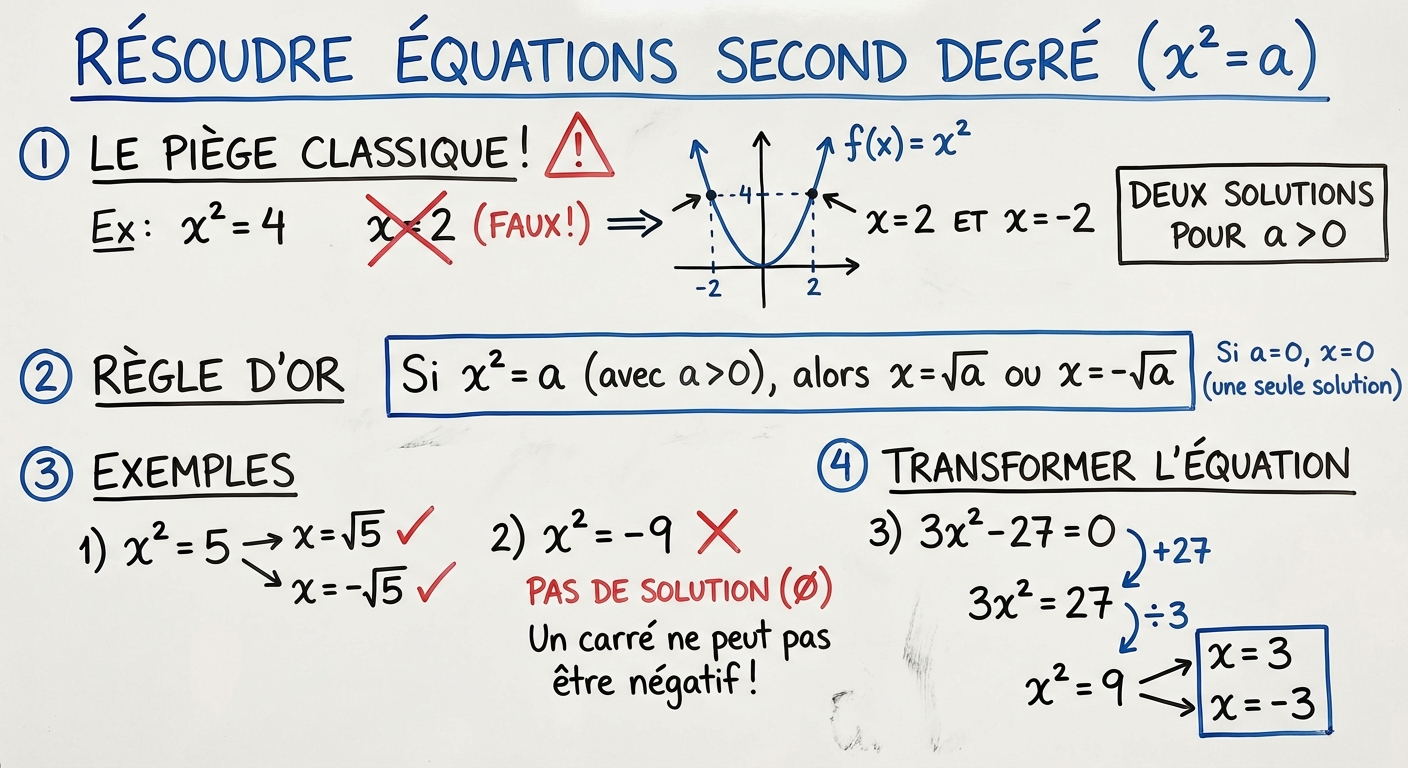 RÉSOUDRE ÉQUATIONS SECOND DEGRÉ (x²=a)
① LE PIÈGE CLASSIQUE! ⚠
Ex: x²=4 x=2 (FAUX!) ⇒
f(x)=x²
4
-2 2
x=2 ET x=-2
DEUX SOLUTIONS
POUR a>0
② RÈGLE D'OR
Si x²=a (avec a>0), alors x=√a ou x=-√a
Si a=0, x=0
(une seule solution)
③ EXEMPLES
1) x²=5 → x=√5 ✓
→ x=-√5 ✓
2) x²=-9 ✗
PAS DE SOLUTION (∅)
Un carré ne peut pas
être négatif!
④ TRANSFORMER L'ÉQUATION
3) 3x²-27=0
+27
3x²=27
÷3
x²=9
x=3
x=-3